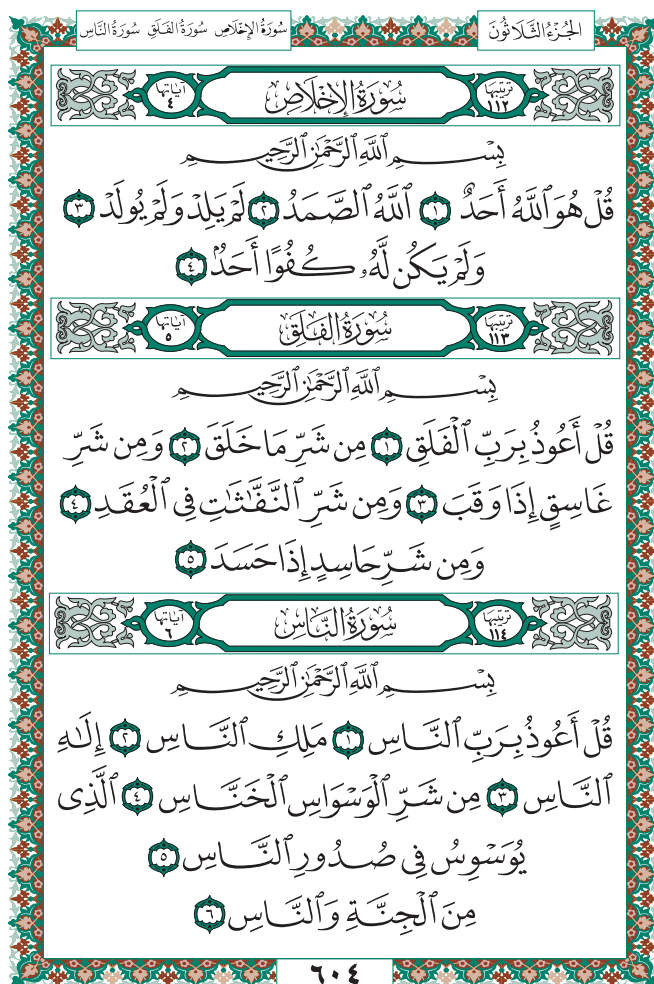 الجُزْءُ الثَّلَاثُونَ
سُورَةُ الإِخْلَاصِ سُورَةُ الفَلَقِ سُورَةُ النَّاسِ
تَرْتِيبُهَا ١١٢ سُورَةُ الإِخْلَاصِ آيَاتُهَا ٤
بِسْمِ ٱللَّهِ ٱلرَّحْمَٰنِ ٱلرَّحِيمِ
قُلْ هُوَ ٱللَّهُ أَحَدٌ ١ ٱللَّهُ ٱلصَّمَدُ ٢ لَمْ يَلِدْ وَلَمْ يُولَدْ ٣
وَلَمْ يَكُن لَّهُۥ كُفُوًا أَحَدٌۢ ٤
تَرْتِيبُهَا ١١٣ سُورَةُ الفَلَقِ آيَاتُهَا ٥
بِسْمِ ٱللَّهِ ٱلرَّحْمَٰنِ ٱلرَّحِيمِ
قُلْ أَعُوذُ بِرَبِّ ٱلْفَلَقِ ١ مِن شَرِّ مَا خَلَقَ ٢ وَمِن شَرِّ
غَاسِقٍ إِذَا وَقَبَ ٣ وَمِن شَرِّ ٱلنَّفَّٰثَٰتِ فِى ٱلْعُقَدِ ٤
وَمِن شَرِّ حَاسِدٍ إِذَا حَسَدَ ٥
تَرْتِيبُهَا ١١٤ سُورَةُ النَّاسِ آيَاتُهَا ٦
بِسْمِ ٱللَّهِ ٱلرَّحْمَٰنِ ٱلرَّحِيمِ
قُلْ أَعُوذُ بِرَبِّ ٱلنَّاسِ ١ مَلِكِ ٱلنَّاسِ ٢ إِلَٰهِ
ٱلنَّاسِ ٣ مِن شَرِّ ٱلْوَسْوَاسِ ٱلْخَنَّاسِ ٤ ٱلَّذِى
يُوَسْوِسُ فِى صُدُورِ ٱلنَّاسِ ٥
مِنَ ٱلْجِنَّةِ وَٱلنَّاسِ ٦
٦٠٤